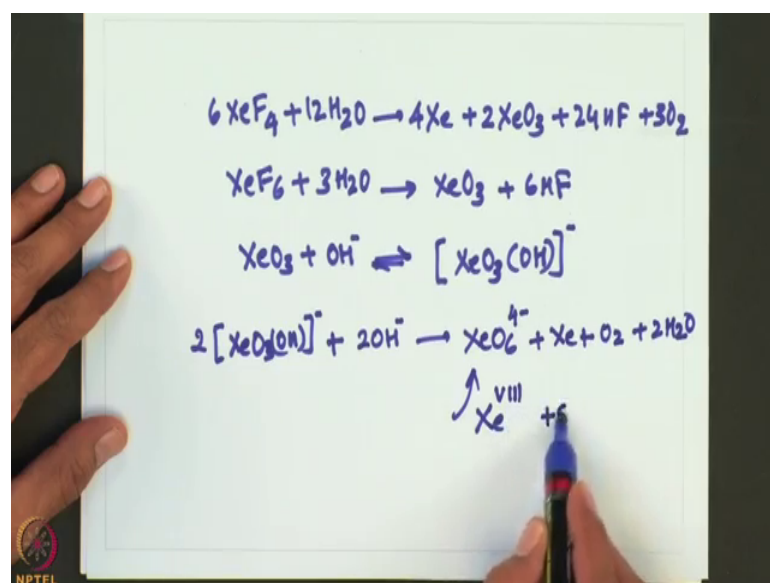 6XeF₄ + 12H₂O → 4Xe + 2XeO₃ + 24HF + 3O₂
XeF₆ + 3H₂O → XeO₃ + 6HF
XeO₃ + OH⁻ ⇌ [XeO₃(OH)]⁻
2[XeO₃(OH)]⁻ + 2OH⁻ → XeO₆⁴⁻ + Xe + O₂ + 2H₂O
Xe^VIII +
NPTEL